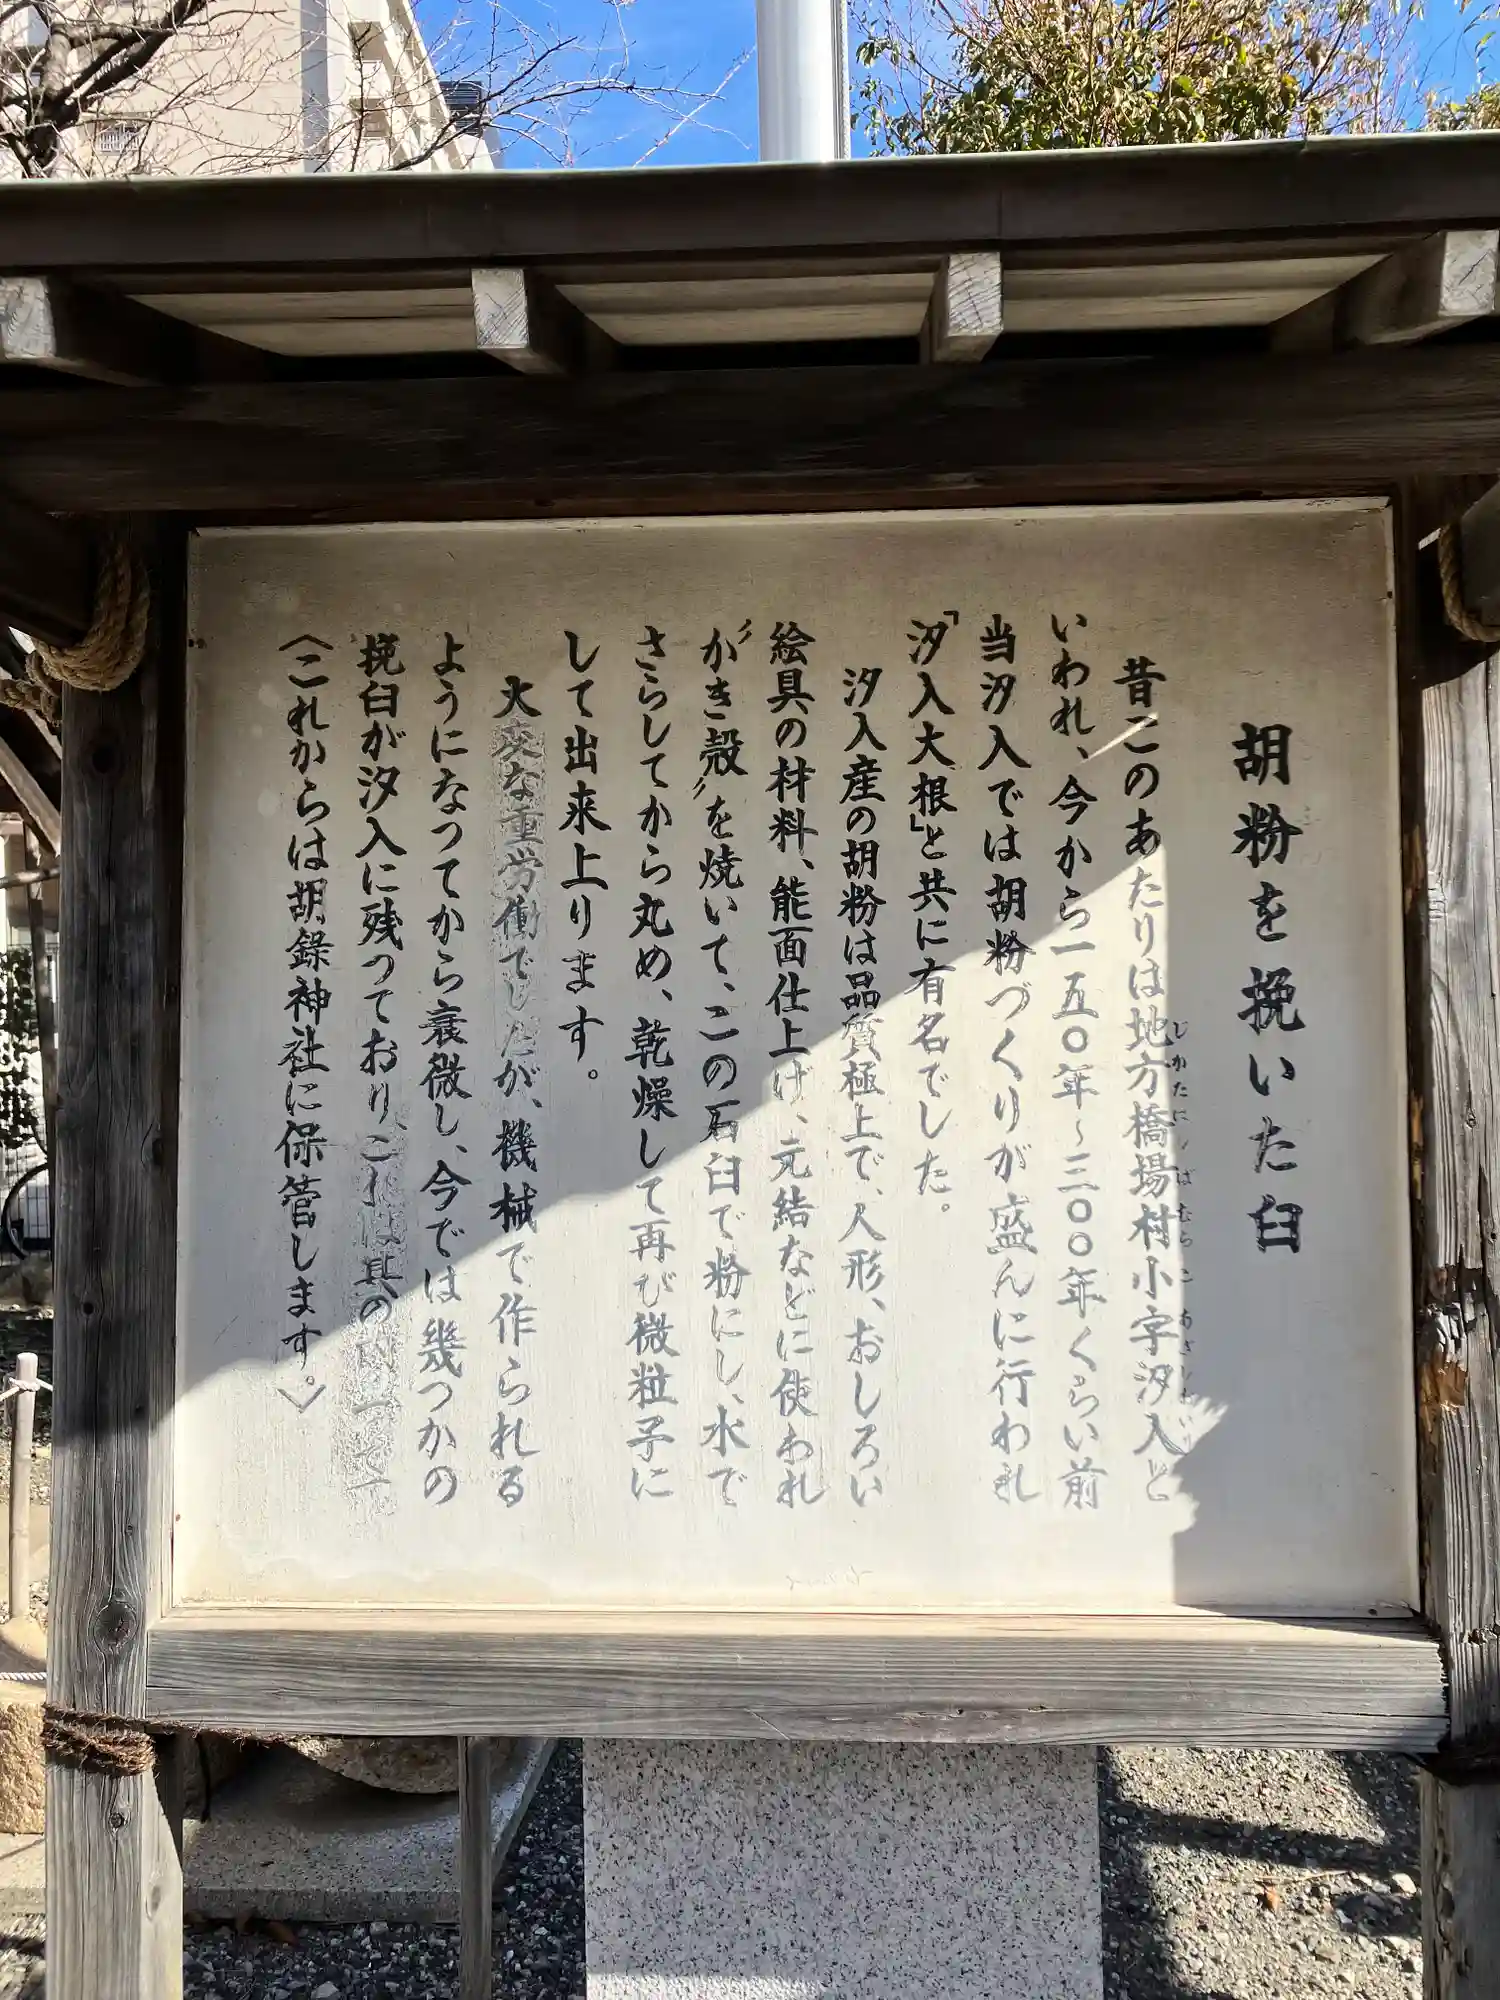 胡粉を挽いた臼
昔このあたりは地方橋場村小字汐入と
いわれ、今から一五〇年~三〇〇年くらい前
当汐入では胡粉づくりが盛んに行われ
「汐入大根」と共に有名でした。
汐入産の胡粉は品質極上で、人形、おしろい
絵具の材料、能面仕上げ、元結などに使われ
〝かき殻〟を焼いて、この石臼で粉にし、水で
さらしてから丸め、乾燥して再び微粒子に
して出来上ります。
大変な重労働でしたが、機械で作られる
ようになってから衰微し、今では幾つかの
挽臼が汐入に残っており、これは其の
〈これからは胡録神社に保管します。〉